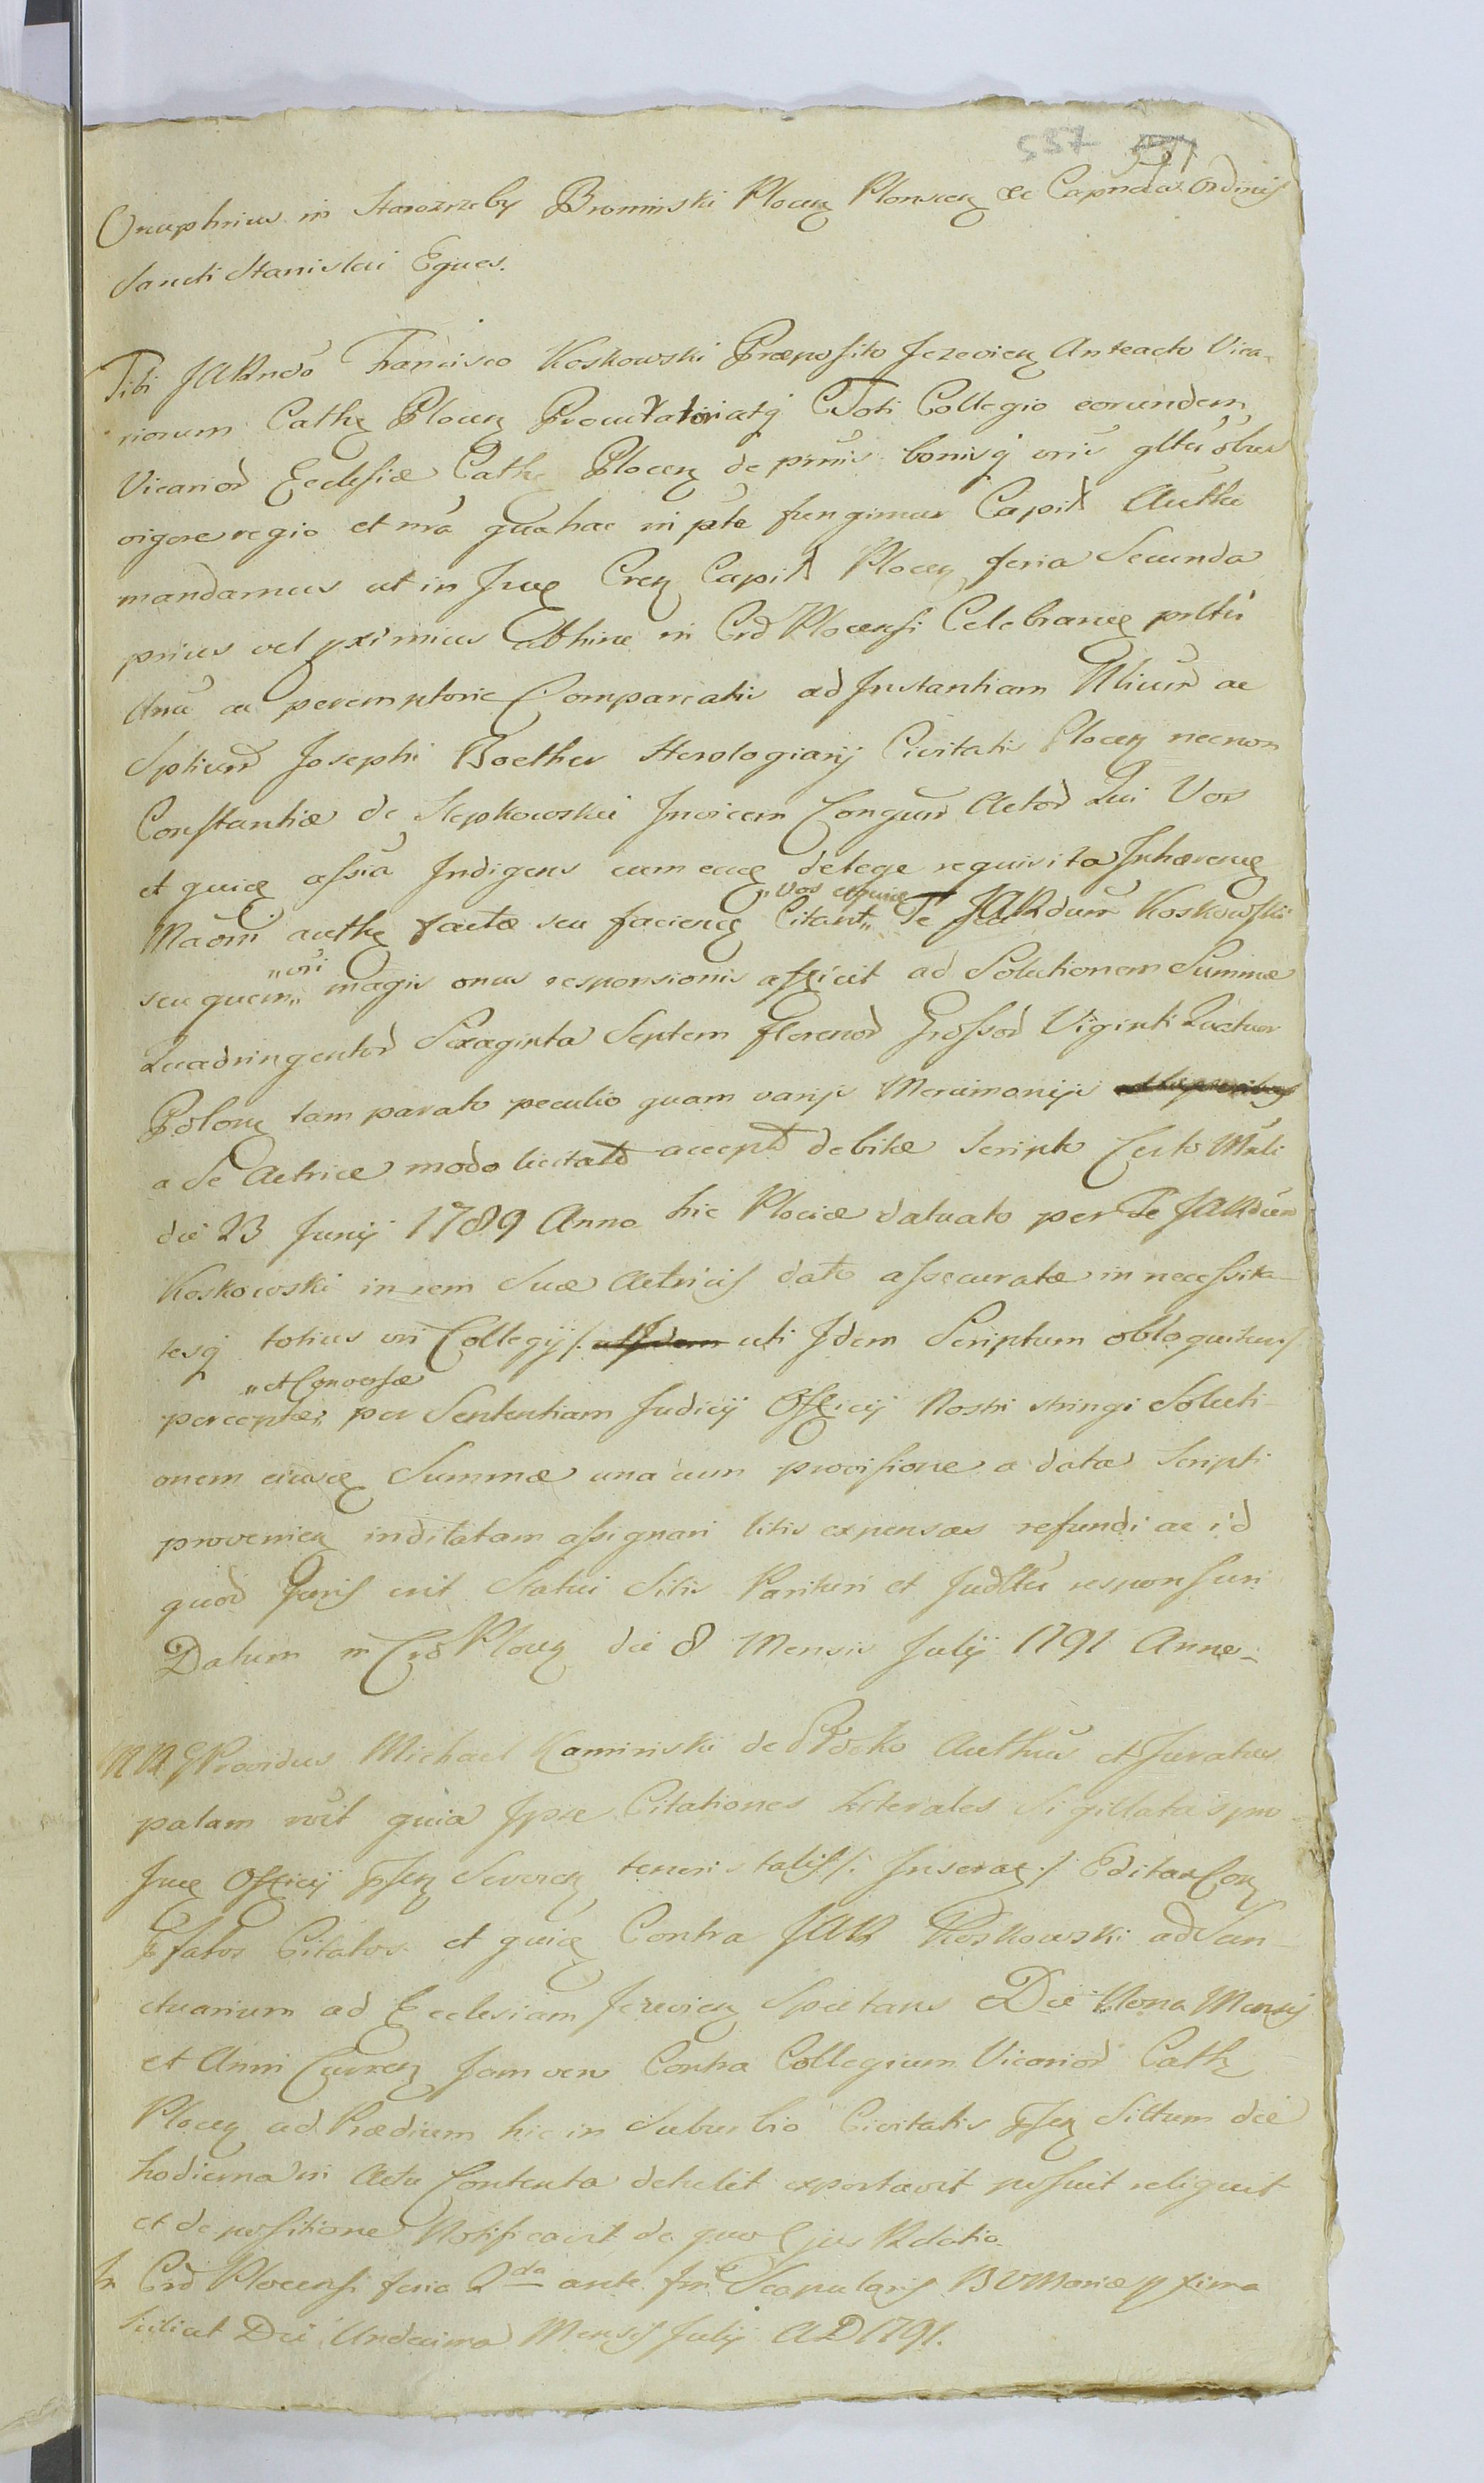 537
Onuphrius in Starozreby Bromirski Plocen Plonscen &c Capneus Ordinis
Sancti Stanislai Eques.
Tibi JARndo Francisco Koskowski Præposito Jezevien Anteacto Vica-
riorum Cath Plocen Procuratori atq Toti Collegio eorundem
Vicariod Ecclesiæ Cath Plocen de prnis bonisq vris gltr obus
vigore regio et mra qua hac in pte fungimur Capit Autte
mandamus ut in Jud Cren Capit Plocen feria Secunda
prius vel pximius Abhinc in Crd Plocensi Celebran prltr
ac peremptorie Compareatis ad Instantiam ac
Josephi Boether Horologiarij Civitatis Plocen necnon
Constantiæ de Stepkowskie Invicem Congum Actod Qui Vos
et quiæ assia Indigens cum ea de lege requisita Inhæren
Maom auth factæ seu facien Citant „Vos et quiæ„ Te JARdum Koskowski
seu quem „vri„ magis onus responsionis afficit ad Solutionem Summæ
Quadringentod Sexaginta Septem florenod Grossod Viginti Quatuor
Polon tam parato peculio quam varijs Mercimonijs
a Se Actrice modo licitato accept debitæ Scripto Certo Mnli
die 23 Junij 1789 Anno hic Plociæ datuato per Te JARdum
Koskowski in rem Suæ Actricis dato assecuratæ in necessita-
tesq totius vri Collegij /: uti Idem Scriptum obloquitur /
perceptæ „et Conversæ„ per Sententiam Judicij Officij Nostri stringi Soluti-
onem eiusd Summæ una cum provisione a data Scripti
provenien inditatam assignari litis expensas refundi ac id
quod Juris erit Statui Sitis Parituri et Judltr responsuri
Datum in Crd Plocen die 8 Mensis Julij 1791 Anno -
Providus Michael Kaminski de Plocko Authus et Juratus
palam rcit quia Ipse Citationes literales Sigillatas pro
Jud Officij pnsen Severen tenoris talis /: Inserat :/ Editas Con
Pfatos Citatos et quiæ Contra JAR Koskowski ad San-
ctuarium ad Ecclesiam Jezevien Spectans Die Nona Mensis
et Anni Curren Jam vero Contra Collegium Vicariod Cath
Plocen ad Prædium hic in Suburbio Civitatis pnsen Sittum die
hodierna in Actu Contenta detulit exportavit posuit reliquit
et de positione Notificavit de quo Ejus Relatio.
In Crd Plocensi feria 2da ante fm Scapularis BVMariæ pxima
Scilicet Die Undecima Mensis Julij AD 1791.